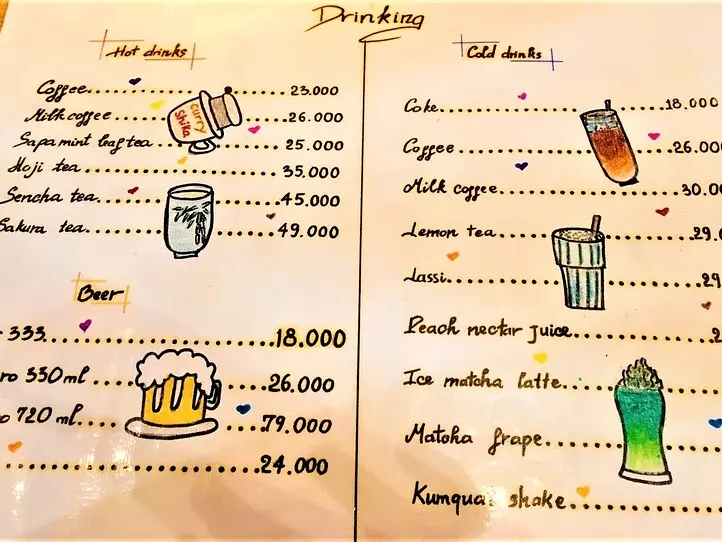 Drinking
Hot drinks
Coffee 23.000
Milk coffee 26.000
Sapa mint leaf tea 25.000
Hoji tea 35.000
Sencha tea 45.000
Sakura tea 49.000
Curry
Shika
Beer
333 18.000
330 ml 26.000
720 ml 79.000
24.000
Cold drinks
Coke 18.000
Coffee 26.000
Milk coffee 30.00
Lemon tea 29.
Lassi 29
Peach nectar juice 2
Ice matcha latte
Matcha frape
Kumqua shake